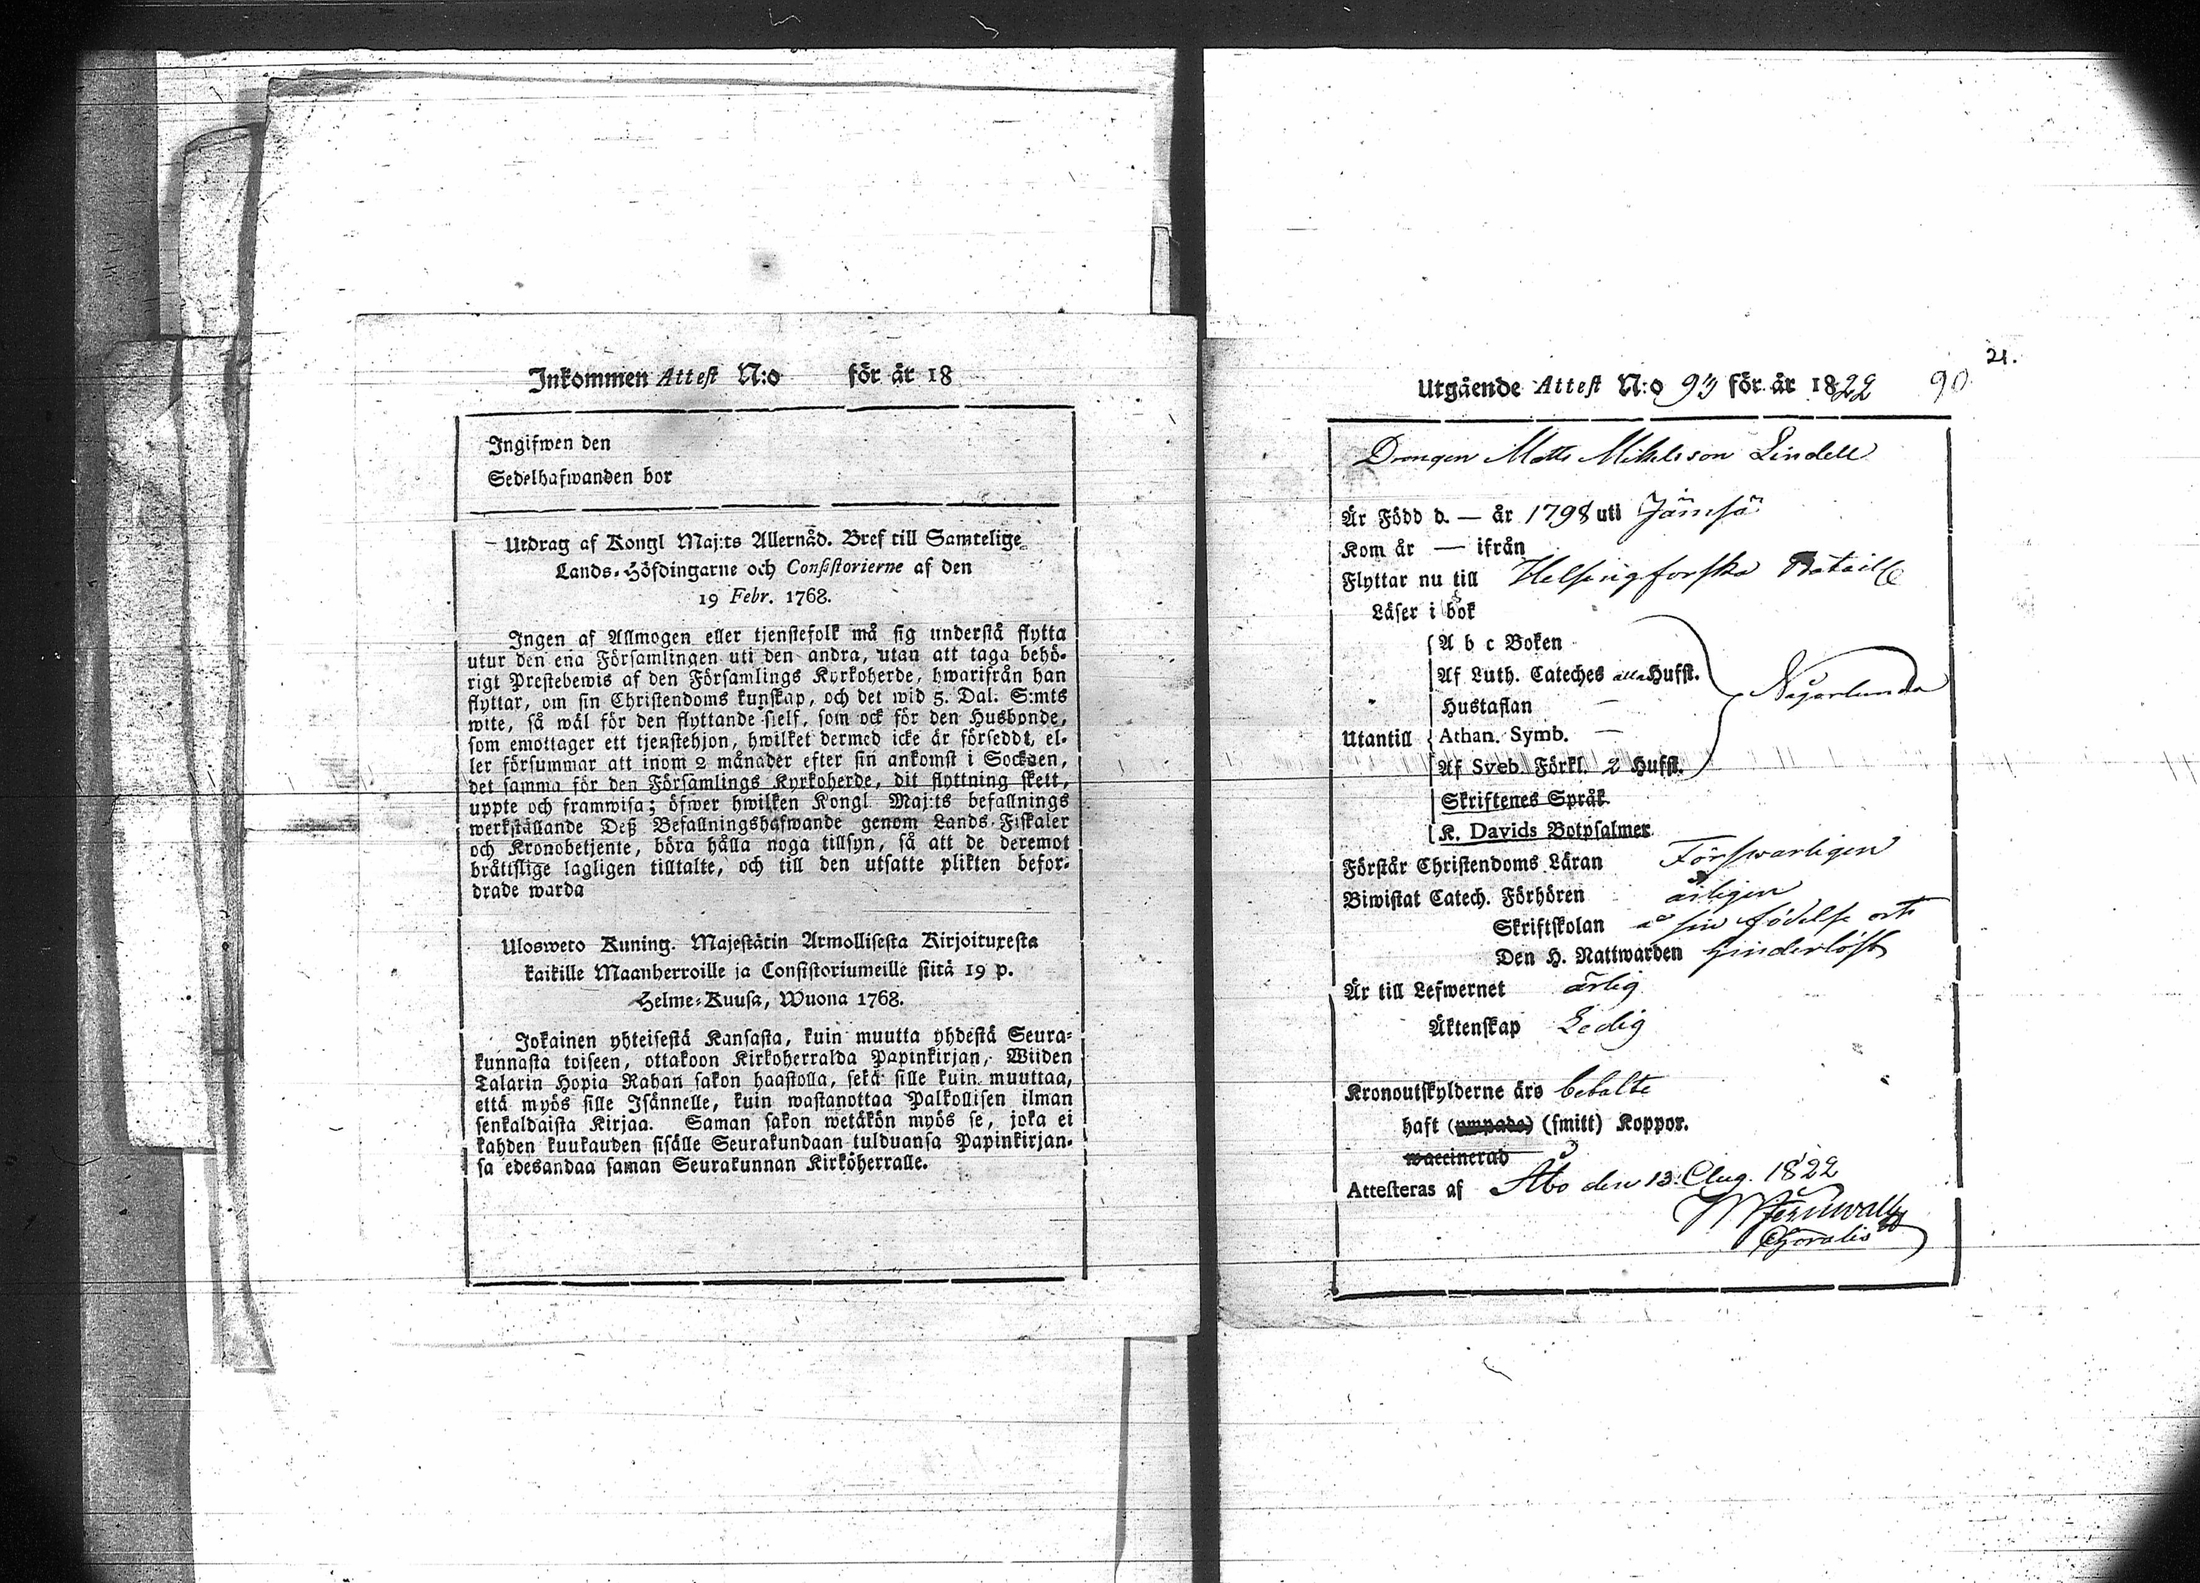 Inkommen Attest N:o för år 18
Ingifwen den
Sedelhafwanden bor
Utdrag af Kongl Maj:ts Allernåd. Bref till Samtelige
Lands-Höfdingarne och Consistorierne af den
19 Febr. 1768.
Ingen af Allmogen eller tjenstefolk må sig understå flytta
utur den ena Församlingen uti den andra, utan att taga behö-
rigt Prestebewis af den Församlings Kyrkoherde, hwarifrån han
flyttar, om sin Christendoms kunskap, och det wid 5. Dal. S:mts
wite, så wäl för den flyttande sielf, som ock för den Husbonde,
som emottager ett tjenstehjon, hwilket dermed icke är försedt, el-
ler försummar att inom 2 månader efter sin ankomst i Socknen,
det samma för den Församlings Kyrkoherde, dit flyttning skett,
uppte och framwisa; öfwer hwilken Kongl Maj:ts befallnings
werkställande Deß Befallningshafwande genom Lands-Fiskaler
och Kronobetjente, böra hålla noga tillsyn, så att de deremot
bråttslige lagligen tilltalte, och till den utsatte plikten befor-
drade warda
Ulosweto Kuning. Majestätin Armollisesta Kirjoituxesta
kaikille Maanherroille ja Consistoriumeille siitä 19 p.
Helme-Kuusa, Wuona 1768.
Jokainen yhteisestä Kansasta, kuin muutta yhdestä Seura-
kunnasta toiseen, ottakoon Kirkoherralda Papinkirjan, Wiiden
Talarin Hopia Rahan sakon haastolla, sekä sille kuin muuttaa,
että myös sille Isännelle, kuin wastanottaa Palkollisen ilman
senkaldaista Kirjaa. Saman sakon wetäkön myös se, joka ei
kahden kuukauden sisälle Seurakundaan tulduansa Papinkirjan-
sa edesandaa saman Seurakunnan Kirköherralle.
21.
Utgående Attest N:o 93 för år 1822 90
Drengen Matts Mikelsson Lindell
Är Född d. — år 1798 uti Jämsä
Kom år — ifrån
Flyttar nu till Helsingforska Bataill
Läser i bok
A b c Boken
Af Luth. Cateches alla Hufst.
Hustaflan — Någorlunda
Utantill Athan. Symb. —
Af Sveb. Förkl. 2 Hufst.
Skriftenes Språk
K. Davids Botpsalmer
Förstår Christendoms Läran Försvarligen
Biwistat Catech. Förhören årligen
Skriftskolan å sin födelse ort
Den H. Nattwarden hinderlöst
Är till Lefwernet ärlig
Äktenskap Ledig
Kronoutskylderne äro betalte
haft (ympade) (smitt) Koppor.
waccinerad
Attesteras af Åbo den 13 Aug. 1822